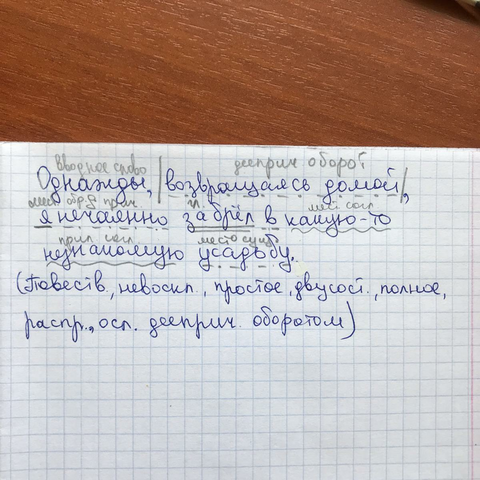 вводное слово дееприч оборот
Однажды, | возвращаясь домой |,
мест обр д прич. гл. мест согл
я нечаянно забрёл в какую-то
прил согл место сущ
незнакомую усадьбу.
(Повеств, невоскл., простое, двусост., полное,
распр., осл. дееприч. оборотом)